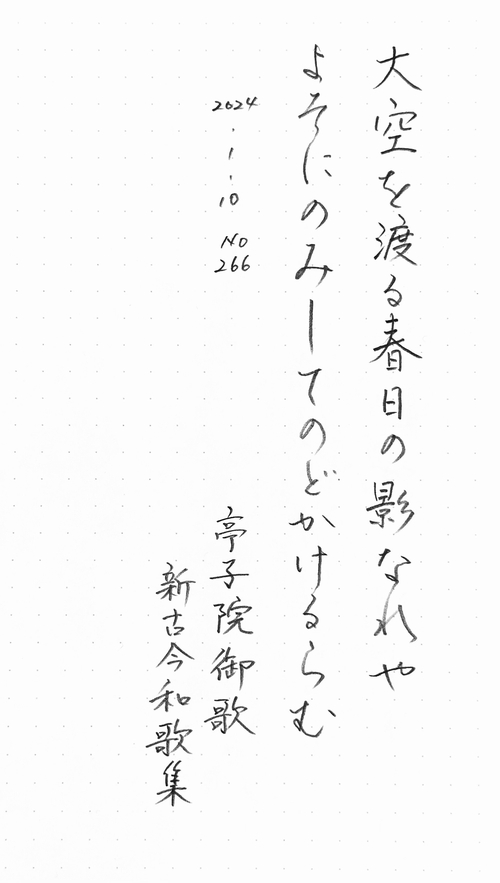 大空を渡る春日の影なれや
よそにのみしてのどかけるらむ
2024
.
1
.
10
No
266
亭子院御歌
新古今和歌集